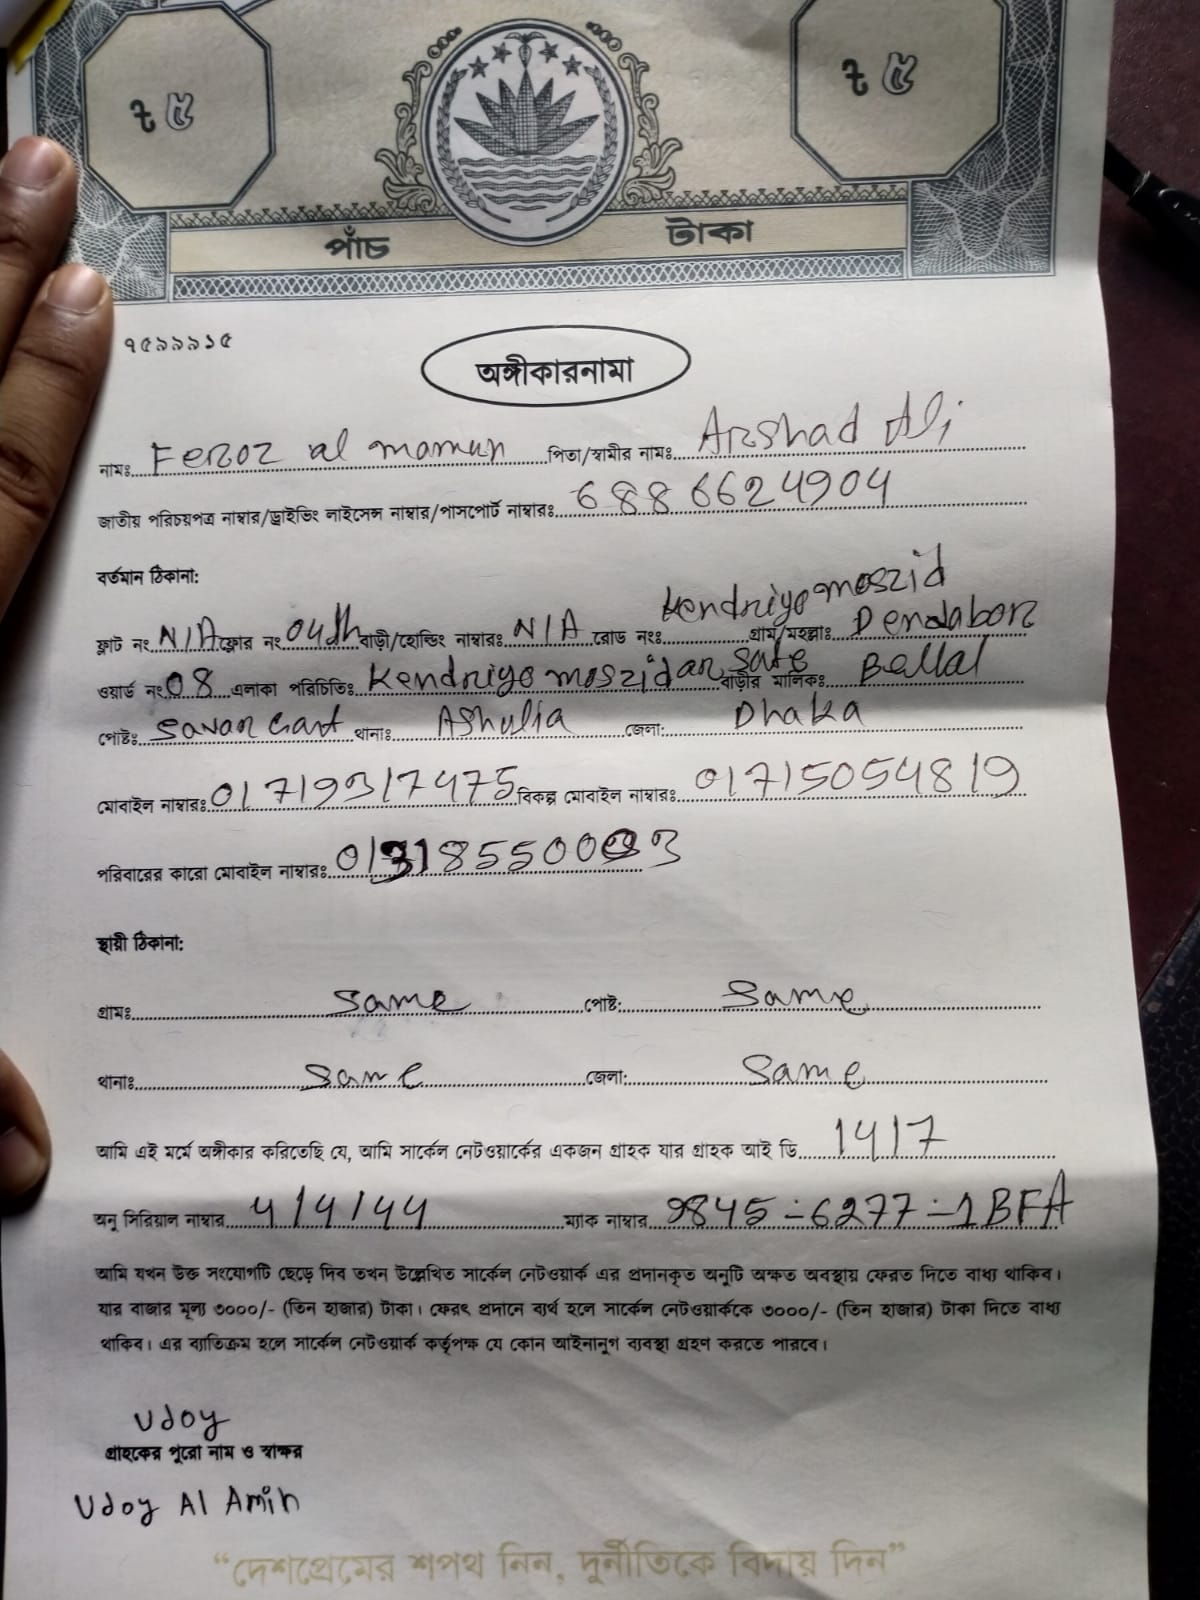 ৳ ৫
৳ ৫
পাঁচ টাকা
৭৫৯৯৯১৫
অঙ্গীকারনামা
নামঃ Feroz al mamun পিতা/স্বামীর নামঃ Arshad Ali
জাতীয় পরিচয়পত্র নাম্বার/ড্রাইভিং লাইসেন্স নাম্বার/পাসপোর্ট নাম্বারঃ 6886624904
বর্তমান ঠিকানা:
ফ্লাট নং N/A ফ্লোর নং 04th বাড়ী/হোল্ডিং নাম্বারঃ N/A রোড নংঃ Kendriyo moszid গ্রাম/মহল্লাঃ Dendabor
ওয়ার্ড নং 08 এলাকা পরিচিতিঃ Kendriyo moszidar sate বাড়ীর মালিকঃ Bellal
পোষ্টঃ Savar Cant থানাঃ Ashulia জেলা: Dhaka
মোবাইল নাম্বারঃ 01719317475 বিকল্প মোবাইল নাম্বারঃ 01715054819
পরিবারের কারো মোবাইল নাম্বারঃ
স্থায়ী ঠিকানা:
গ্রামঃ same পোষ্ট: Same
থানাঃ same জেলা: Same
আমি এই মর্মে অঙ্গীকার করিতেছি যে, আমি সার্কেল নেটওয়ার্কের একজন গ্রাহক যার গ্রাহক আই ডি 1417
অনু সিরিয়াল নাম্বার 4/4/44 ম্যাক নাম্বার 9845-6277-1BFA
আমি যখন উক্ত সংযোগটি ছেড়ে দিব তখন উল্লেখিত সার্কেল নেটওয়ার্ক এর প্রদানকৃত অনুটি অক্ষত অবস্থায় ফেরত দিতে বাধ্য থাকিব।
যার বাজার মূল্য ৩০০০/- (তিন হাজার) টাকা। ফেরৎ প্রদানে ব্যর্থ হলে সার্কেল নেটওয়ার্ককে ৩০০০/- (তিন হাজার) টাকা দিতে বাধ্য
থাকিব। এর ব্যাতিক্রম হলে সার্কেল নেটওয়ার্ক কর্তৃপক্ষ যে কোন আইনানুগ ব্যবস্থা গ্রহণ করতে পারবে।
Udoy
গ্রাহকের পুরো নাম ও স্বাক্ষর
Udoy Al Amin
“দেশপ্রেমের শপথ নিন, দুর্নীতিকে বিদায় দিন”